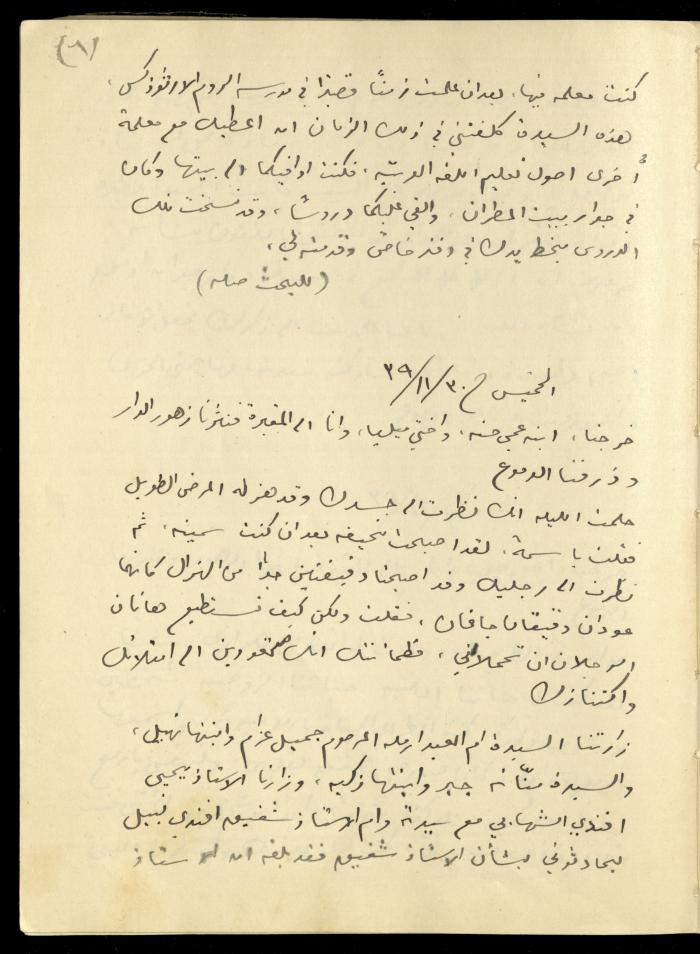 (٨١
كنت معلمه فيها، بعد ان علمت زمنًا قصيرًا في مدرسه الروم الارثوذكس.
هذه السيدة كلفتني في ذلك الزمان ان اعطيك مع معلمة
أُخرى اصول تعليم اللغه العربيه، فكنت اوافيكما الى بيتها وكان
في جوار بيت المطران، والقي عليكما دروسًا، وقد نسخت تلك
الدروس بخط يدك في دفتر خاص وقدمته لي،
(للبحث صله)
الخميس ٣٠/١١/٣٩
خرجنا، ابنه عمي حنه، واختي ميليا، وانا الى المقبرة فنثرنا زهور الدار
وذرفنا الدموع
حلمت الليله انك نظرت الى جسدك وقد هزله المرض الطويل
فقلت باسمة، لقد اصبحت نحيفه بعد ان كنت سمينه، ثم
نظرت الى رجليك وقد اصبحتا دقيقتين جدًا من الهزال كانهما
عودان دقيقان جافان، فقلت ولكن كيف تستطيع هاتان
الرجلان ان تحملاني، فطمأنتك انك ستعودين الى امتلائك
واكتنازك
زارتنا السيدة ام العبد ارمله المرحوم جميل عزام وابنتها نهيل،
والسيدة منّانه جبر وابنتها زكيه، وزارنا الاستاذ يحيى
افندي الشهابي مع سيدته وام الاستاذ شفيق افندي نبيل
ليحادثوني بشأن الاستاذ شفيق فقد بلغه ان الاستاذ